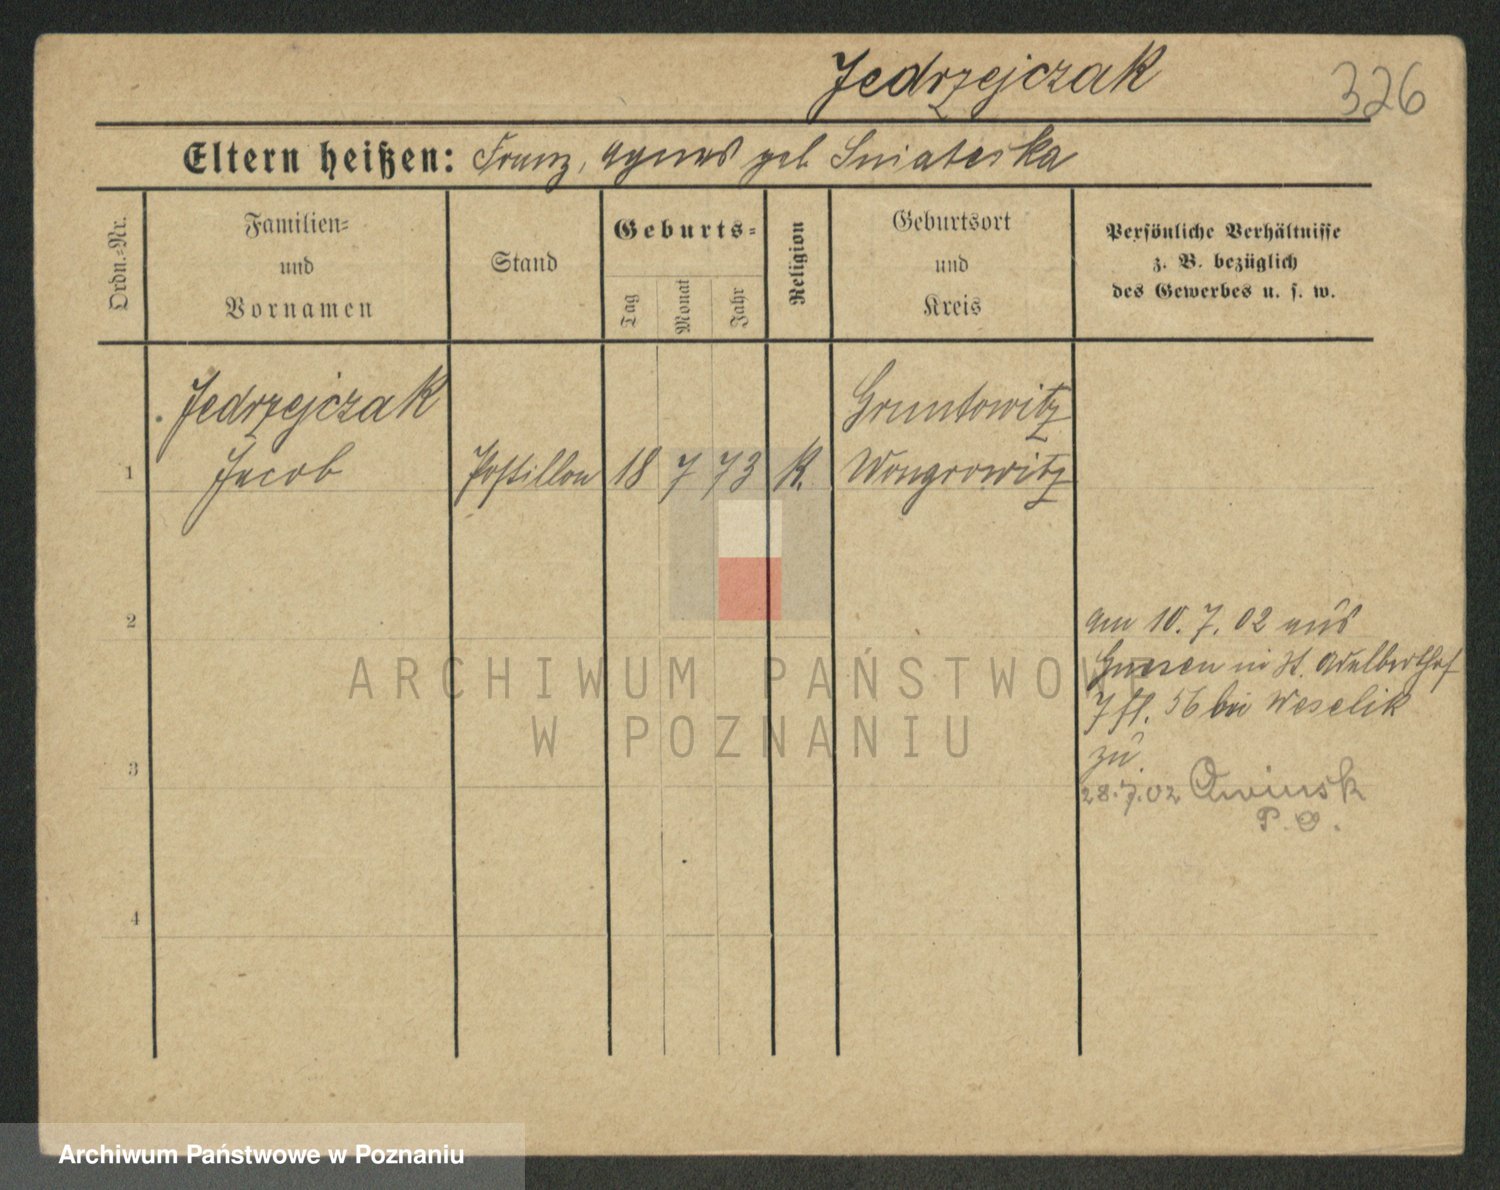 Jedrzejczak 326
Eltern heißen: Franz, Agnes geb. Sniateska
Ordn.=Nr.
Familien=
und
Vornamen
Stand
Geburts=
Tag
Monat
Jahr
Religion
Geburtsort
und
Kreis
Persönliche Verhältnisse
z. B. bezüglich
des Gewerbes u. s. w.
Jedrzejczak Gruntowitz
1 Jacob Postillon 18 7 73 K. Wongrowitz
2
am 10. 7. 02 aus
Gnesen in St. Adalberthof
7 56 bei Weselik
zu.
3
28.7.02
P. O.
4
ARCHIWUM PAŃSTWOWE
W POZNANIU
Archiwum Państwowe w Poznaniu